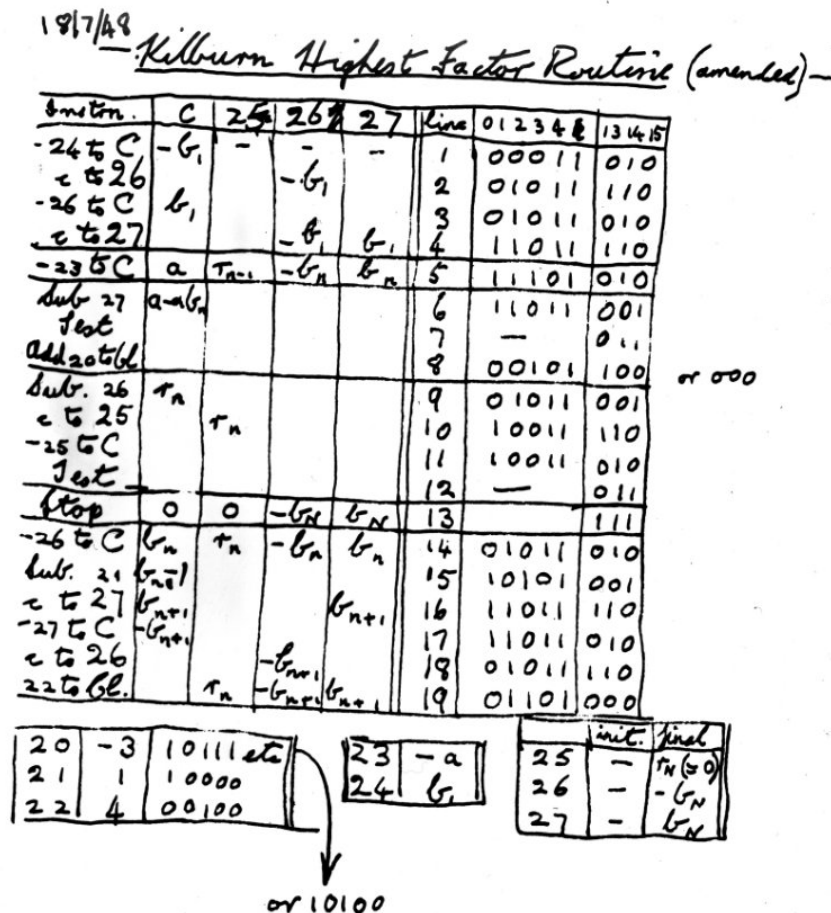 18/7/48
Kilburn Highest Factor Routine (amended) —
Instrn. C 25 26 27 line 0 1 2 3 4 13 14 15
-24 to C -b₁ - - - 1 00011 010
c to 26 -b₁ 2 01011 110
-26 to C b₁ 3 01011 010
c to 27 -b₁ b₁ 4 11011 110
-23 to C a rₙ₋₁ -bₙ bₙ 5 11101 010
Sub. 27 a-nbₙ 6 11011 001
Test 7 — 011
Add 20 to Cl. 8 00101 100 or 000
Sub. 26 rₙ 9 01011 001
c to 25 rₙ 10 10011 110
-25 to C 11 10011 010
Test 12 — 011
Stop 0 0 -b_N b_N 13 111
-26 to C bₙ rₙ -bₙ bₙ 14 01011 010
Sub. 21 bₙ-1 15 10101 001
c to 27 bₙ₊₁ bₙ₊₁ 16 11011 110
-27 to C -bₙ₊₁ 17 11011 010
c to 26 -bₙ₊₁ 18 01011 110
22 to Cl. rₙ -bₙ₊₁ bₙ₊₁ 19 01101 000
20 -3 10111 etc
21 1 10000
22 4 00100
or 10100
23 -a
24 b₁
init. final
25 - r_N (=0)
26 - -b_N
27 - b_N